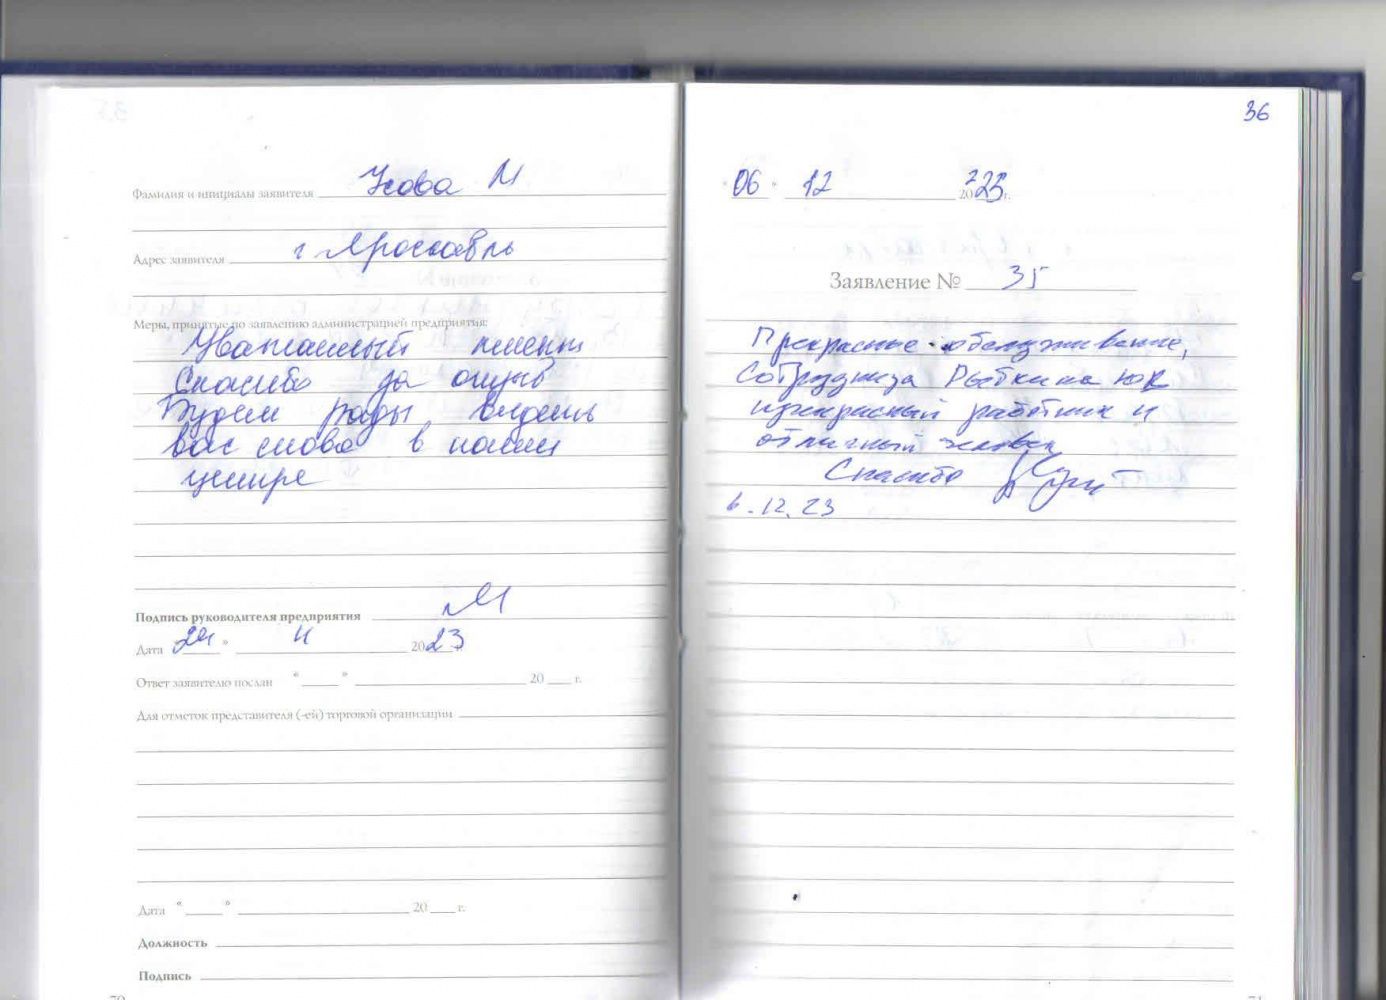 Фамилия и инициалы заявителя Усова М
Адрес заявителя г Ярославль
Меры, принятые по заявлению администрацией предприятия:
Уважаемый клиент
Спасибо за отзыв
Будем рады видеть
вас снова в нашем
центре
Подпись руководителя предприятия
Дата " " 11 2023
Ответ заявителю послан " " 20 г.
Для отметок представителя (-ей) торговой организации
Дата " " 20 г.
Должность
Подпись
70
36
"06" 12 20 23 г.
Заявление № 35
Прекрасное обслуживание,
Сотрудница Рыбкина ЮК
прекрасный работник и
отличный человек
Спасибо
6.12.23
71